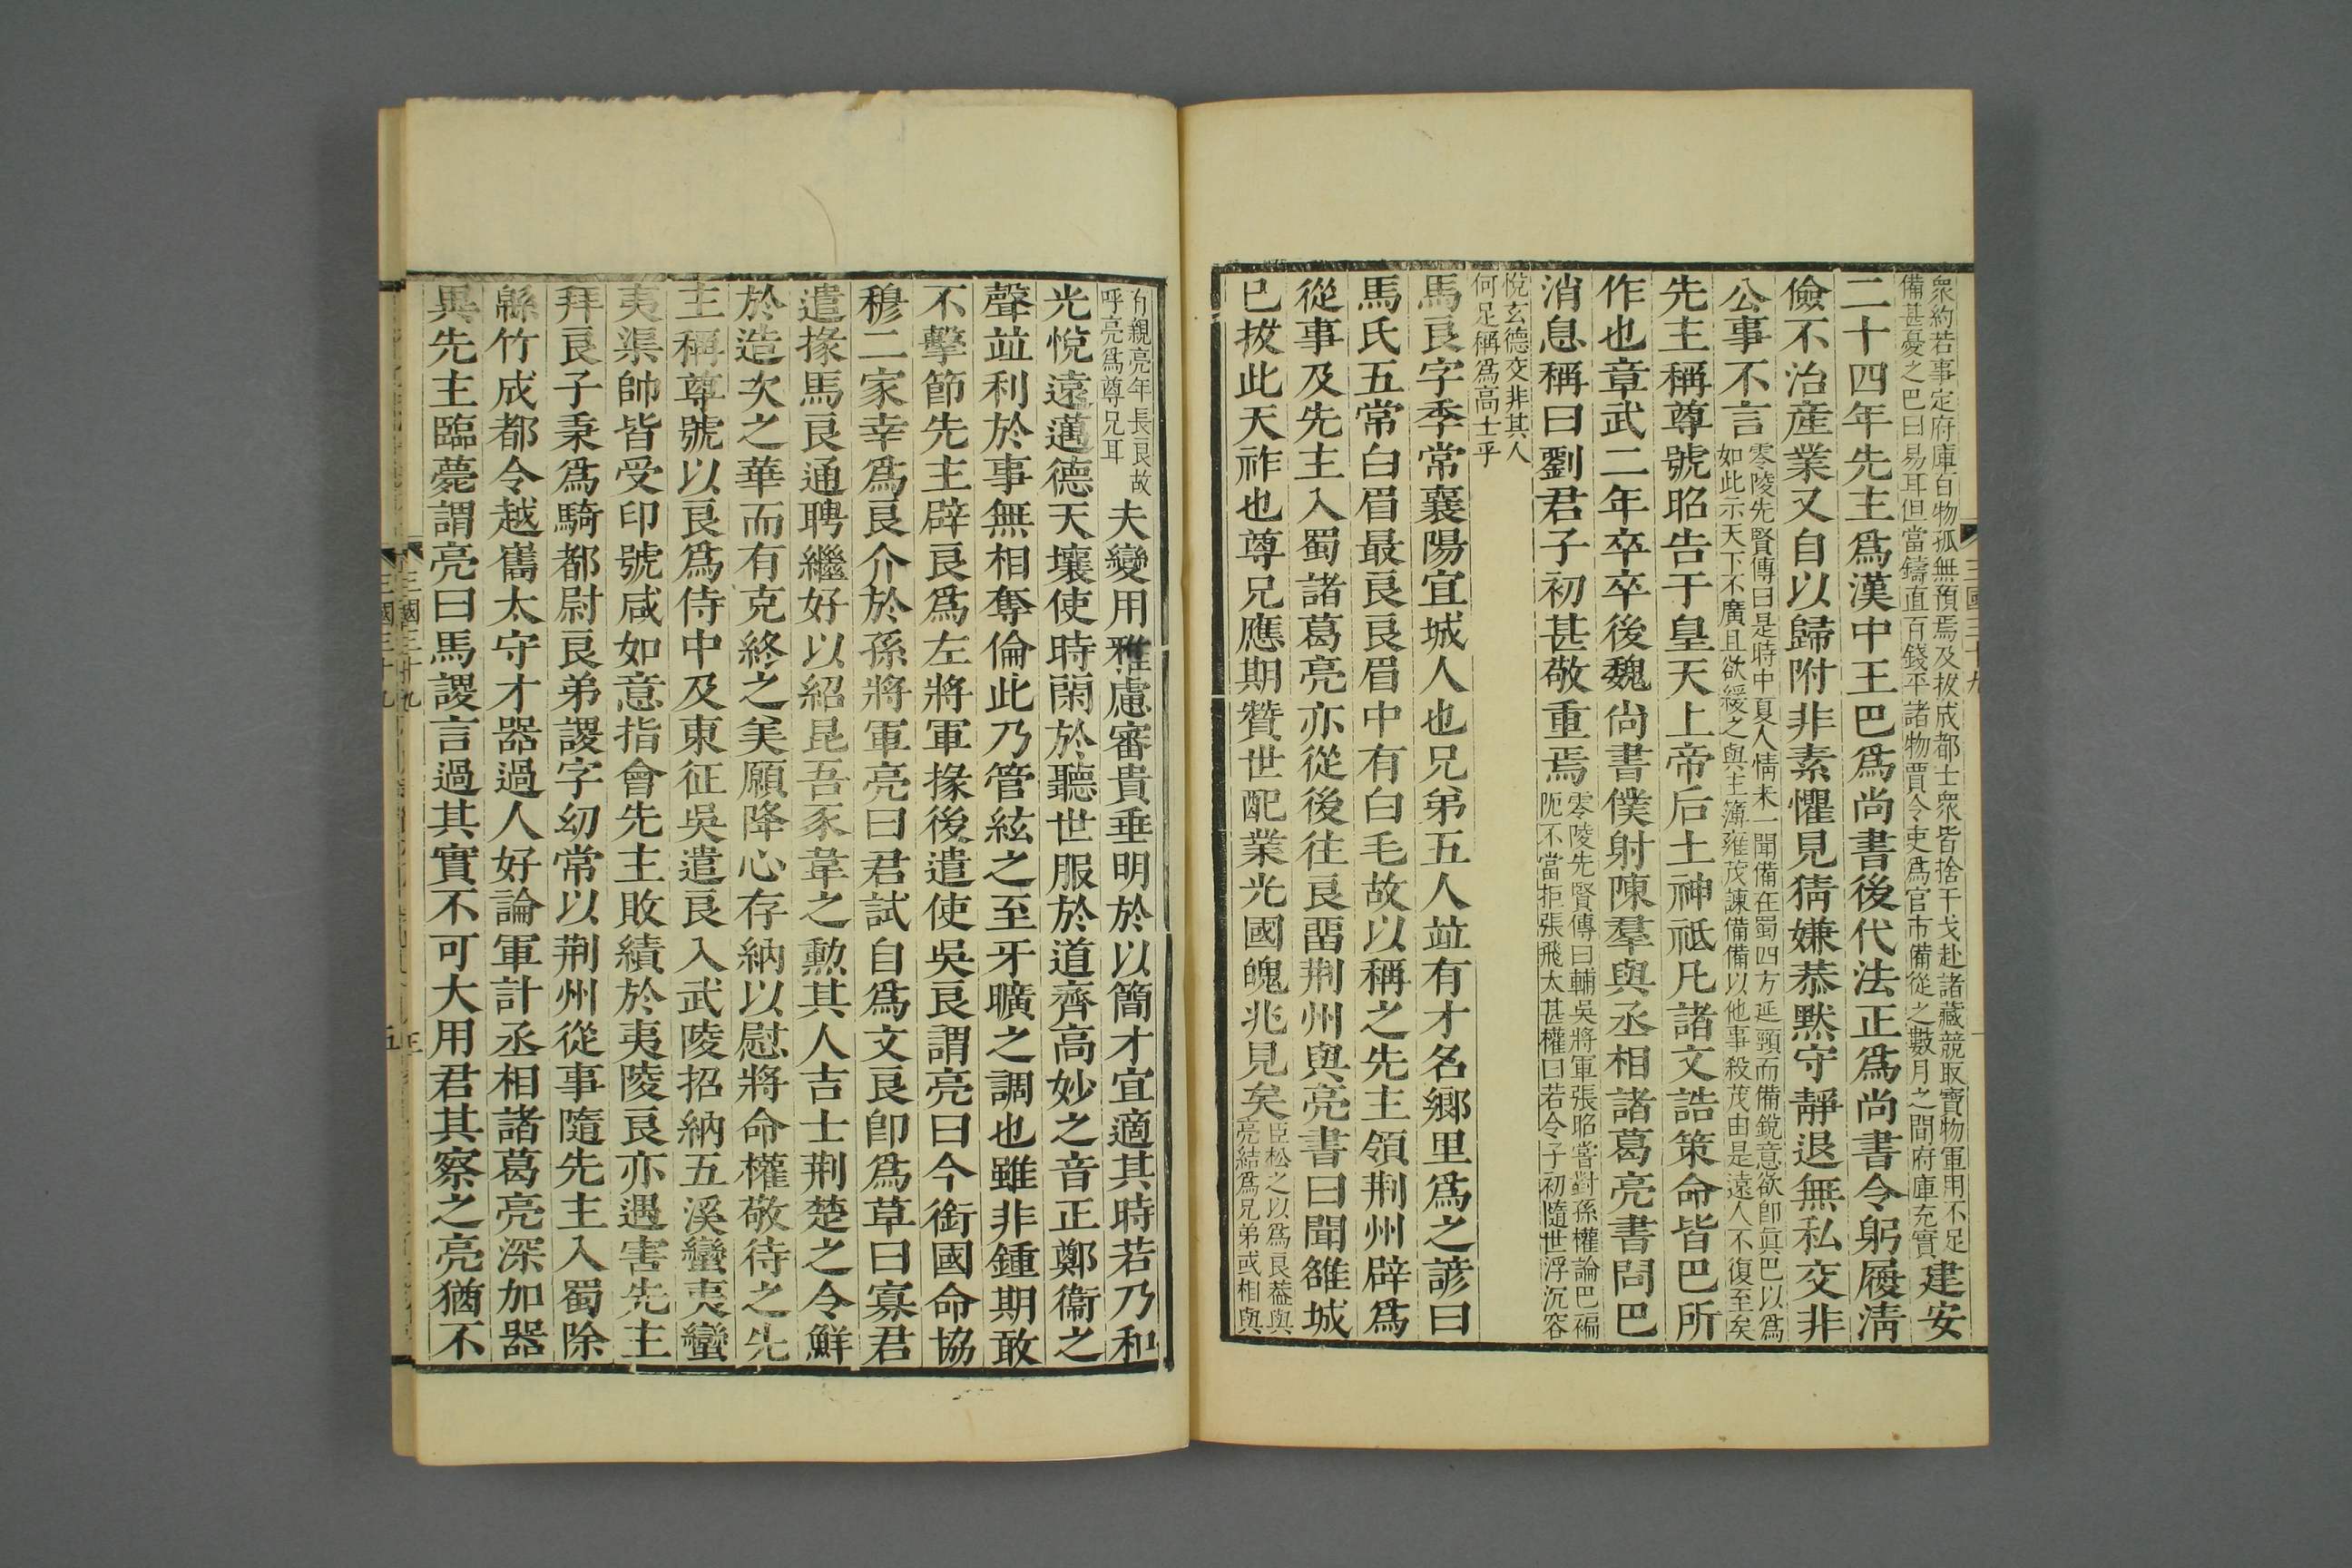 三國三十九
衆約若事定府庫百物孤無預焉及拔成都士衆皆捨干戈赴諸藏競取寶物軍用不足
備甚憂之巴曰易耳但當鑄直百錢平諸物賈令吏爲官市備從之數月之間府庫充實
建安
二十四年先主爲漢中王巴爲尚書後代法正爲尚書令躬履淸
儉不治産業又自以歸附非素懼見猜嫌恭默守靜退無私交非
公事不言
零陵先賢傳曰是時中夏人情未一聞備在蜀四方延頸而備銳意欲卽眞巴以爲
如此示天下不廣且欲緩之與主簿雍茂諫備備以他事殺茂由是遠人不復至矣
先主稱尊號昭告于皇天上帝后土神祇凡諸文誥策命皆巴所
作也章武二年卒卒後魏尚書僕射陳羣與丞相諸葛亮書問巴
消息稱曰劉君子初甚敬重焉
零陵先賢傳曰輔吳將軍張昭嘗對孫權論巴褊
阨不當拒張飛太甚權曰若令子初隨世浮沉容
悅玄德交非其人
何足稱爲高士乎
馬良字季常襄陽宜城人也兄弟五人竝有才名鄉里爲之諺曰
馬氏五常白眉最良良眉中有白毛故以稱之先主領荆州辟爲
從事及先主入蜀諸葛亮亦從後往良畱荆州與亮書曰聞雒城
已拔此天祚也尊兄應期贊世配業光國魄兆見矣
臣松之以爲良葢與
亮結爲兄弟或相與
有親亮年長良故
呼亮爲尊兄耳
夫變用雅慮審貴垂明於以簡才宜適其時若乃和
光悅遠邁德天壤使時閑於聽世服於道齊高妙之音正鄭衞之
聲竝利於事無相奪倫此乃管絃之至牙曠之調也雖非鍾期敢
不擊節先主辟良爲左將軍掾後遣使吳良謂亮曰今銜國命協
穆二家幸爲良介於孫將軍亮曰君試自爲文良卽爲草曰寡君
遣掾馬良通聘繼好以紹昆吾豕韋之勳其人吉士荆楚之令鮮
於造次之華而有克終之美願降心存納以慰將命權敬待之先
主稱尊號以良爲侍中及東征吳遣良入武陵招納五溪蠻夷蠻
夷渠帥皆受印號咸如意指會先主敗績於夷陵良亦遇害先主
拜良子秉爲騎都尉良弟謖字幼常以荆州從事隨先主入蜀除
緜竹成都令越嶲太守才器過人好論軍計丞相諸葛亮深加器
異先主臨薨謂亮曰馬謖言過其實不可大用君其察之亮猶不
三國三十九
三國三十九
五